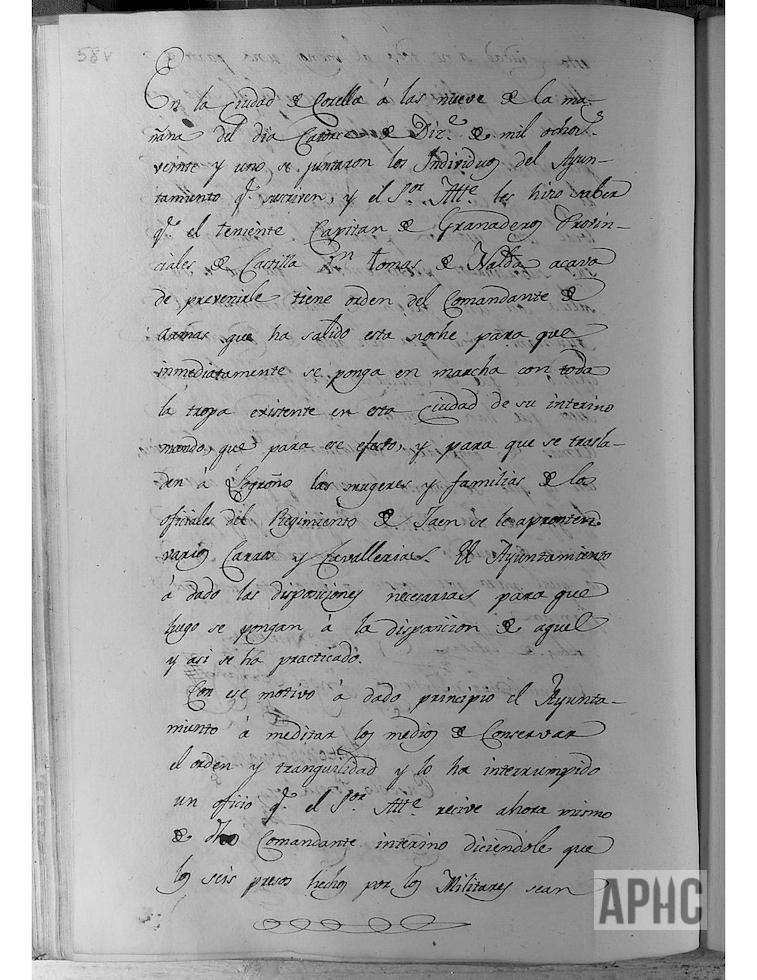 58v
En la Ciudad de Corella á las nueve de la ma-
ñana del dia Catorce de Dize. de mil ochocs.
veinte y uno se juntaron los Individuos del Ayun-
tamiento qe. suscriven, y el Sor. Alle. les hizo saber
qe. el teniente Capitan de Granaderos Provin-
ciales de Castilla Dn. Tomas de Nalda acava
de prevenirle tiene orden del Comandante de
armas que ha salido esta noche para que
inmediatamente se ponga en marcha con toda
la tropa existente en esta Ciudad de su interino
mando, que para ese efecto, y para que se trasla-
den á Logroño las mugeres y familias de los
oficiales del Regimiento de Jaen se le apronten
varios Carros y Cavallerias. El Ayuntamiento
á dado las disposiciones necesarias para que
luego se pongan á la disposicion de aquel
y asi se ha practicado.
Con ese motivo á dado principio el Ayunta-
miento á meditar los medios de Conservar
el orden y tranquilidad y lo ha interrumpido
un oficio qe. el Sor. Alle. recive ahora mismo
de dho Comandante interino diciendole que
los seis presos hechos por los Militares sean
APHC